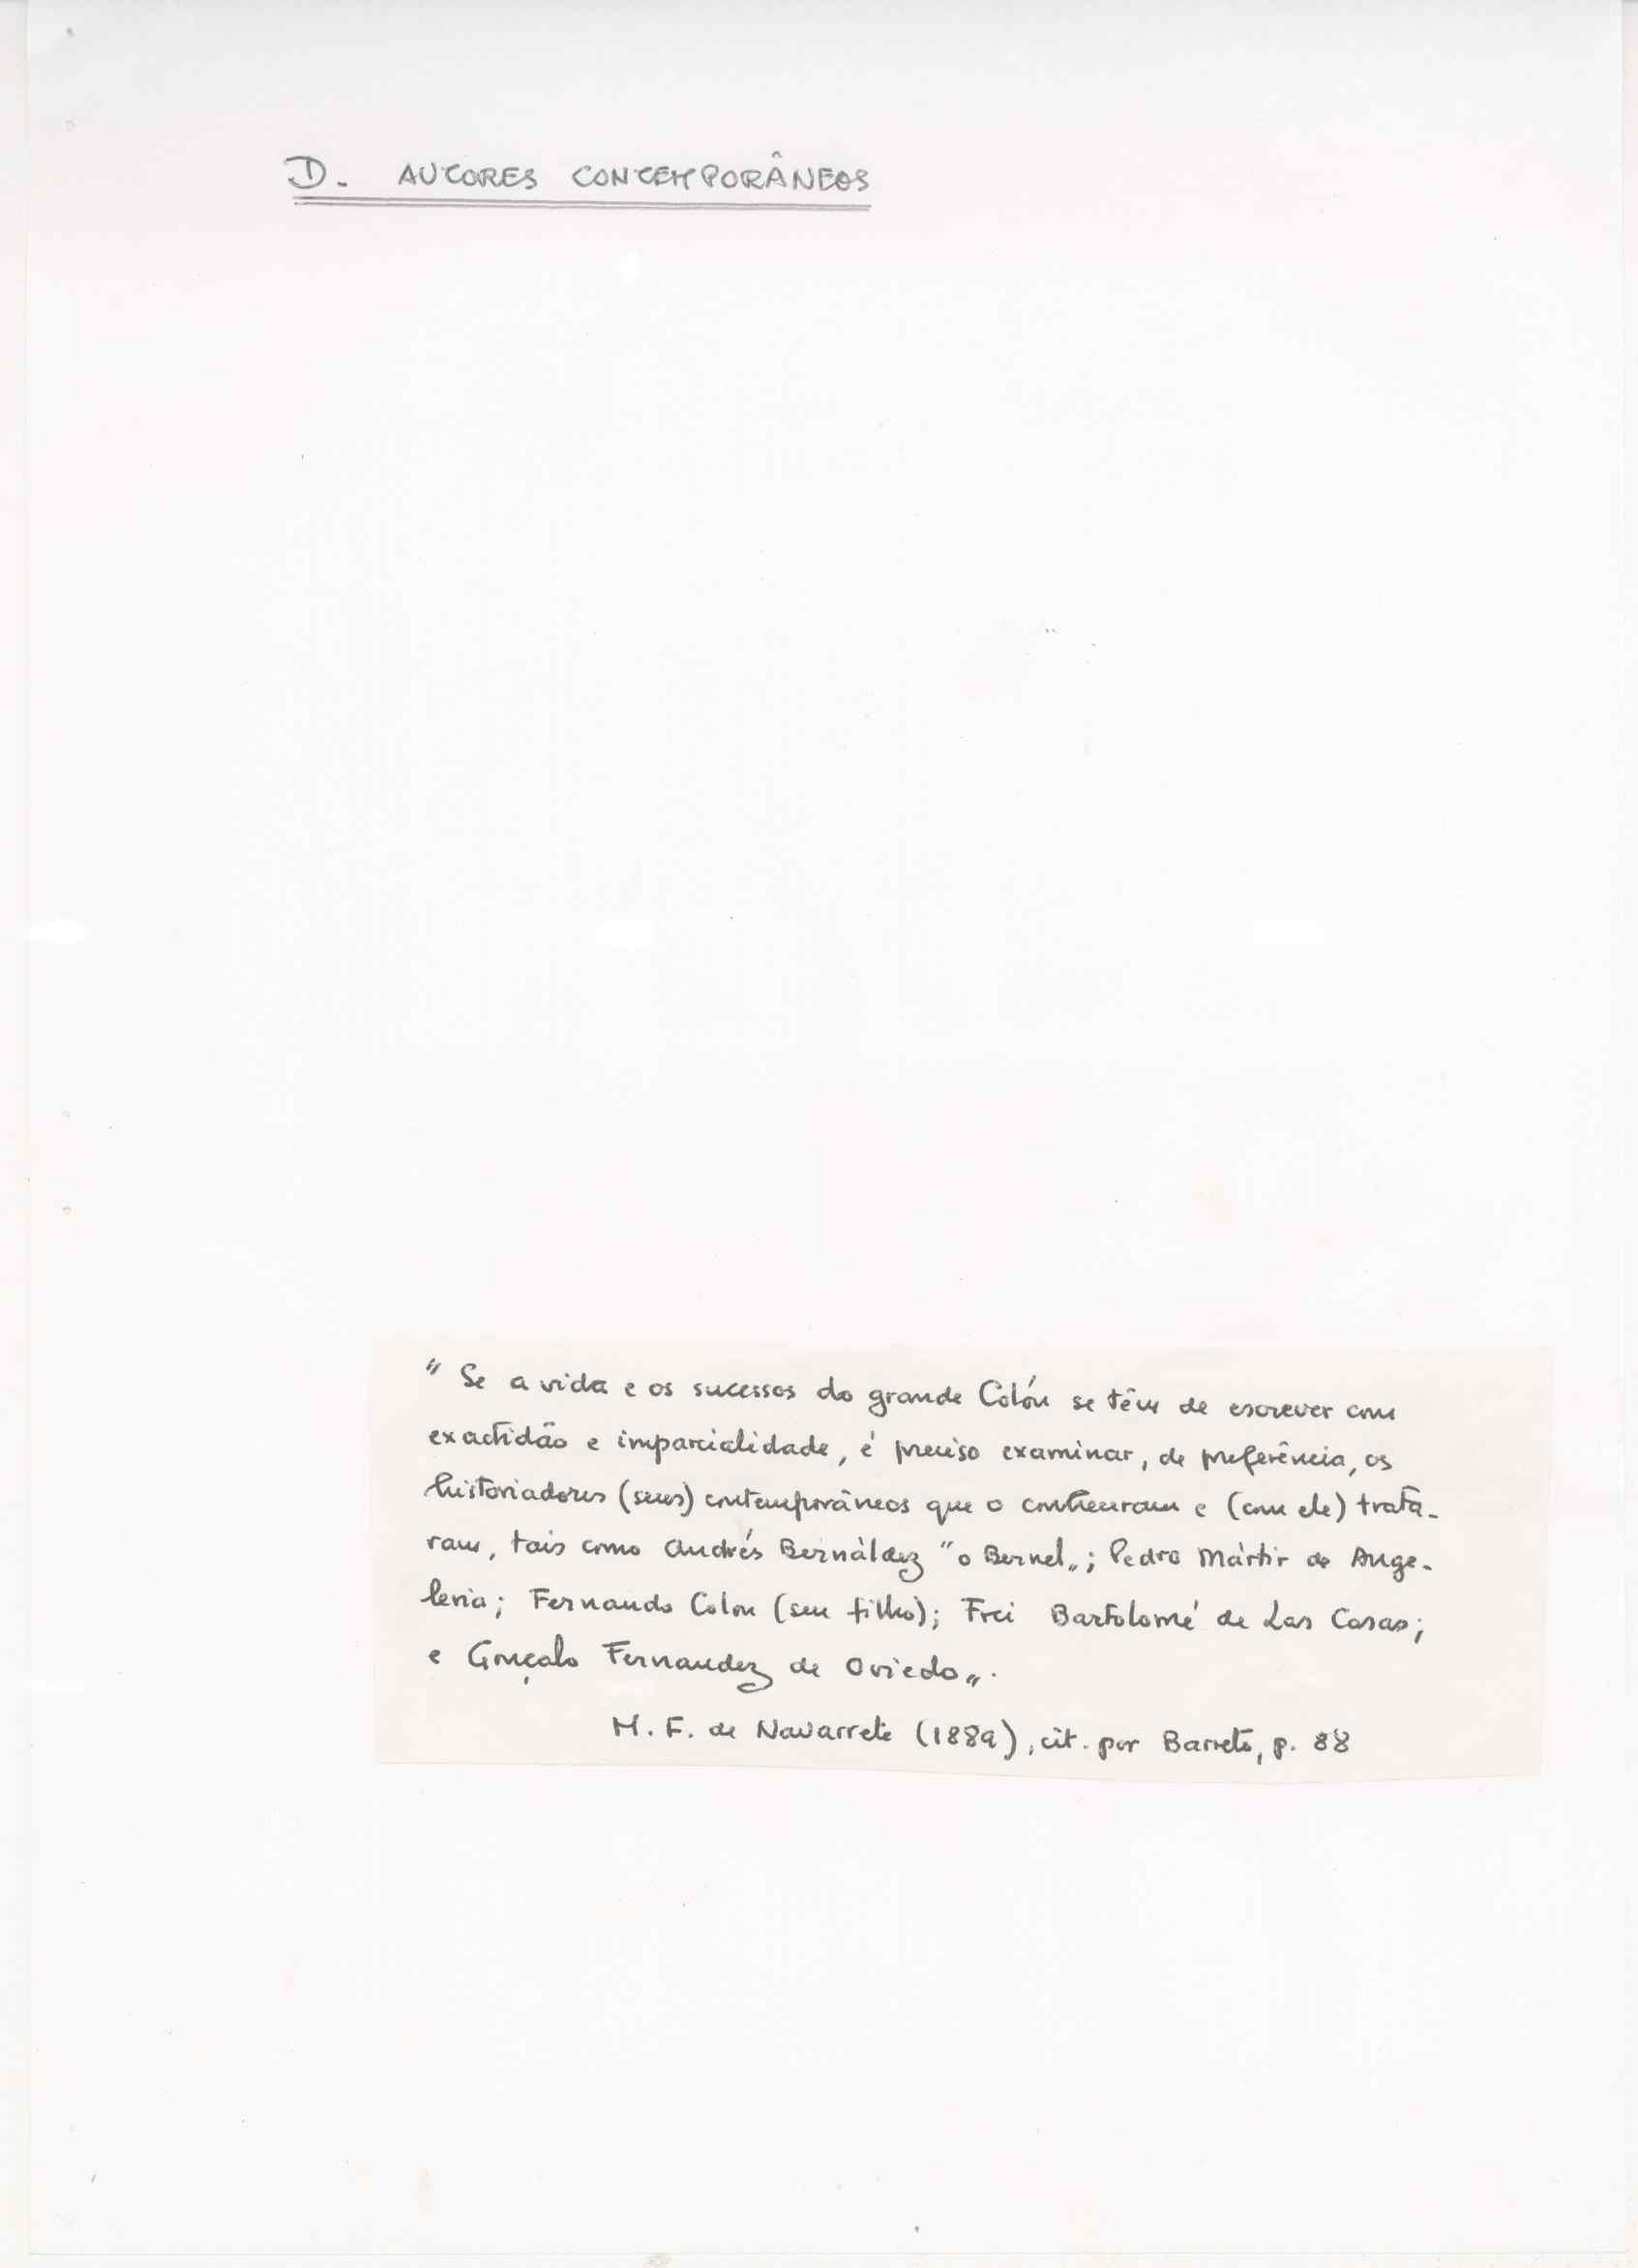 D. AUTORES CONTEMPORÂNEOS
"Se a vida e os sucessos do grande Colón se têm de escrever com
exactidão e imparcialidade, é preciso examinar, de preferência, os
historiadores (seus) contemporâneos que o conheceram e (com ele) trata-
ram, tais como Andrés Bernáldez "o Bernel„; Pedro Mártir de Ange-
leria; Fernando Colon (seu filho); Frei Bartolomé de Las Casas;
e Gonçalo Fernandez de Oviedo„.
M. F. de Navarrete (1889), cit. por Barreto, p. 88